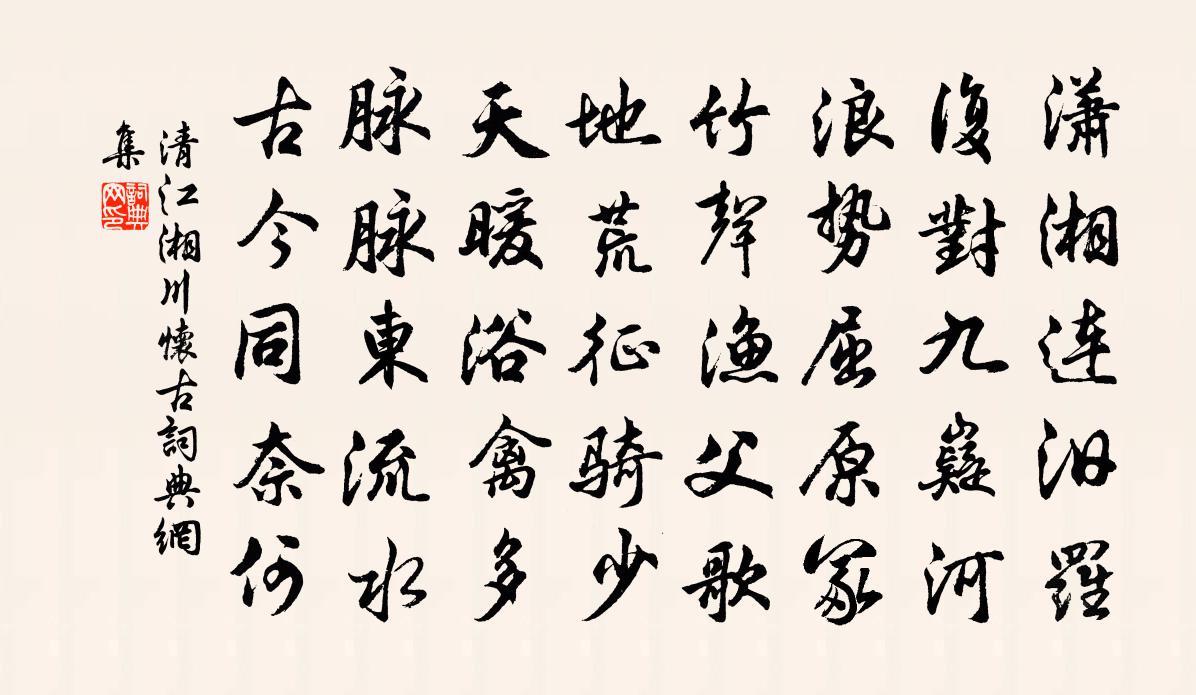 瀟湘連汨羅
復對九嶷河
浪勢屈原冢
竹聲漁父歌
地荒征騎少
天暖浴禽多
脉脉東流水
古今同奈何
清江湘川懷古詞典網
集
詞典
网印